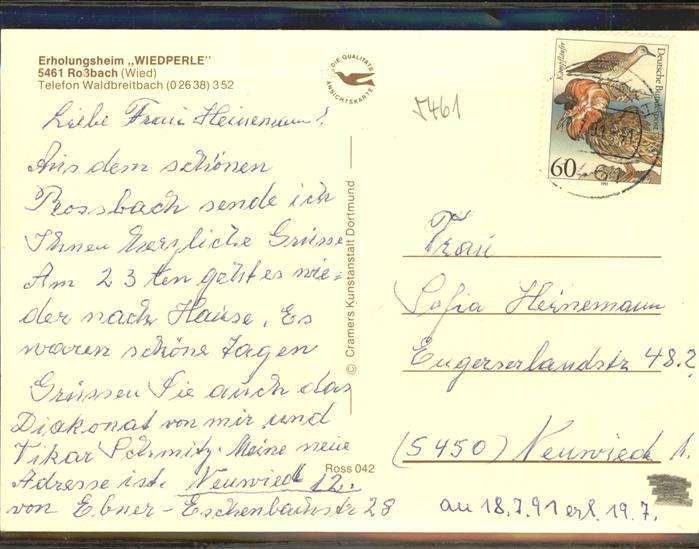 Erholungsheim „WIEDPERLE"
5461 Roßbach (Wied)
Telefon Waldbreitbach (0 26 38) 3 52
DIE QUALITÄTS
ANSICHTSKARTE
5461
Kampfläufer
Deutsche Bundespost
60
1991
Liebe Frau Heinemann!
Aus dem schönen
Rossbach sende ich
Ihnen herzliche Grüsse
Am 23ten geht es wie-
der nach Hause. Es
waren schöne Tagen
Grüssen Sie auch das
Diakonat von mir und
Vikar Schmitz. Meine neue
Adresse ist: Neuwied 12.
von Ebner-Eschenbachstr 28
© Cramers Kunstanstalt Dortmund
Ross 042
Frau
Sofia Heinemann
Engerserlandstr 48.2
(5450) Neuwied 1.
an 18.7.91 erl. 19.7.